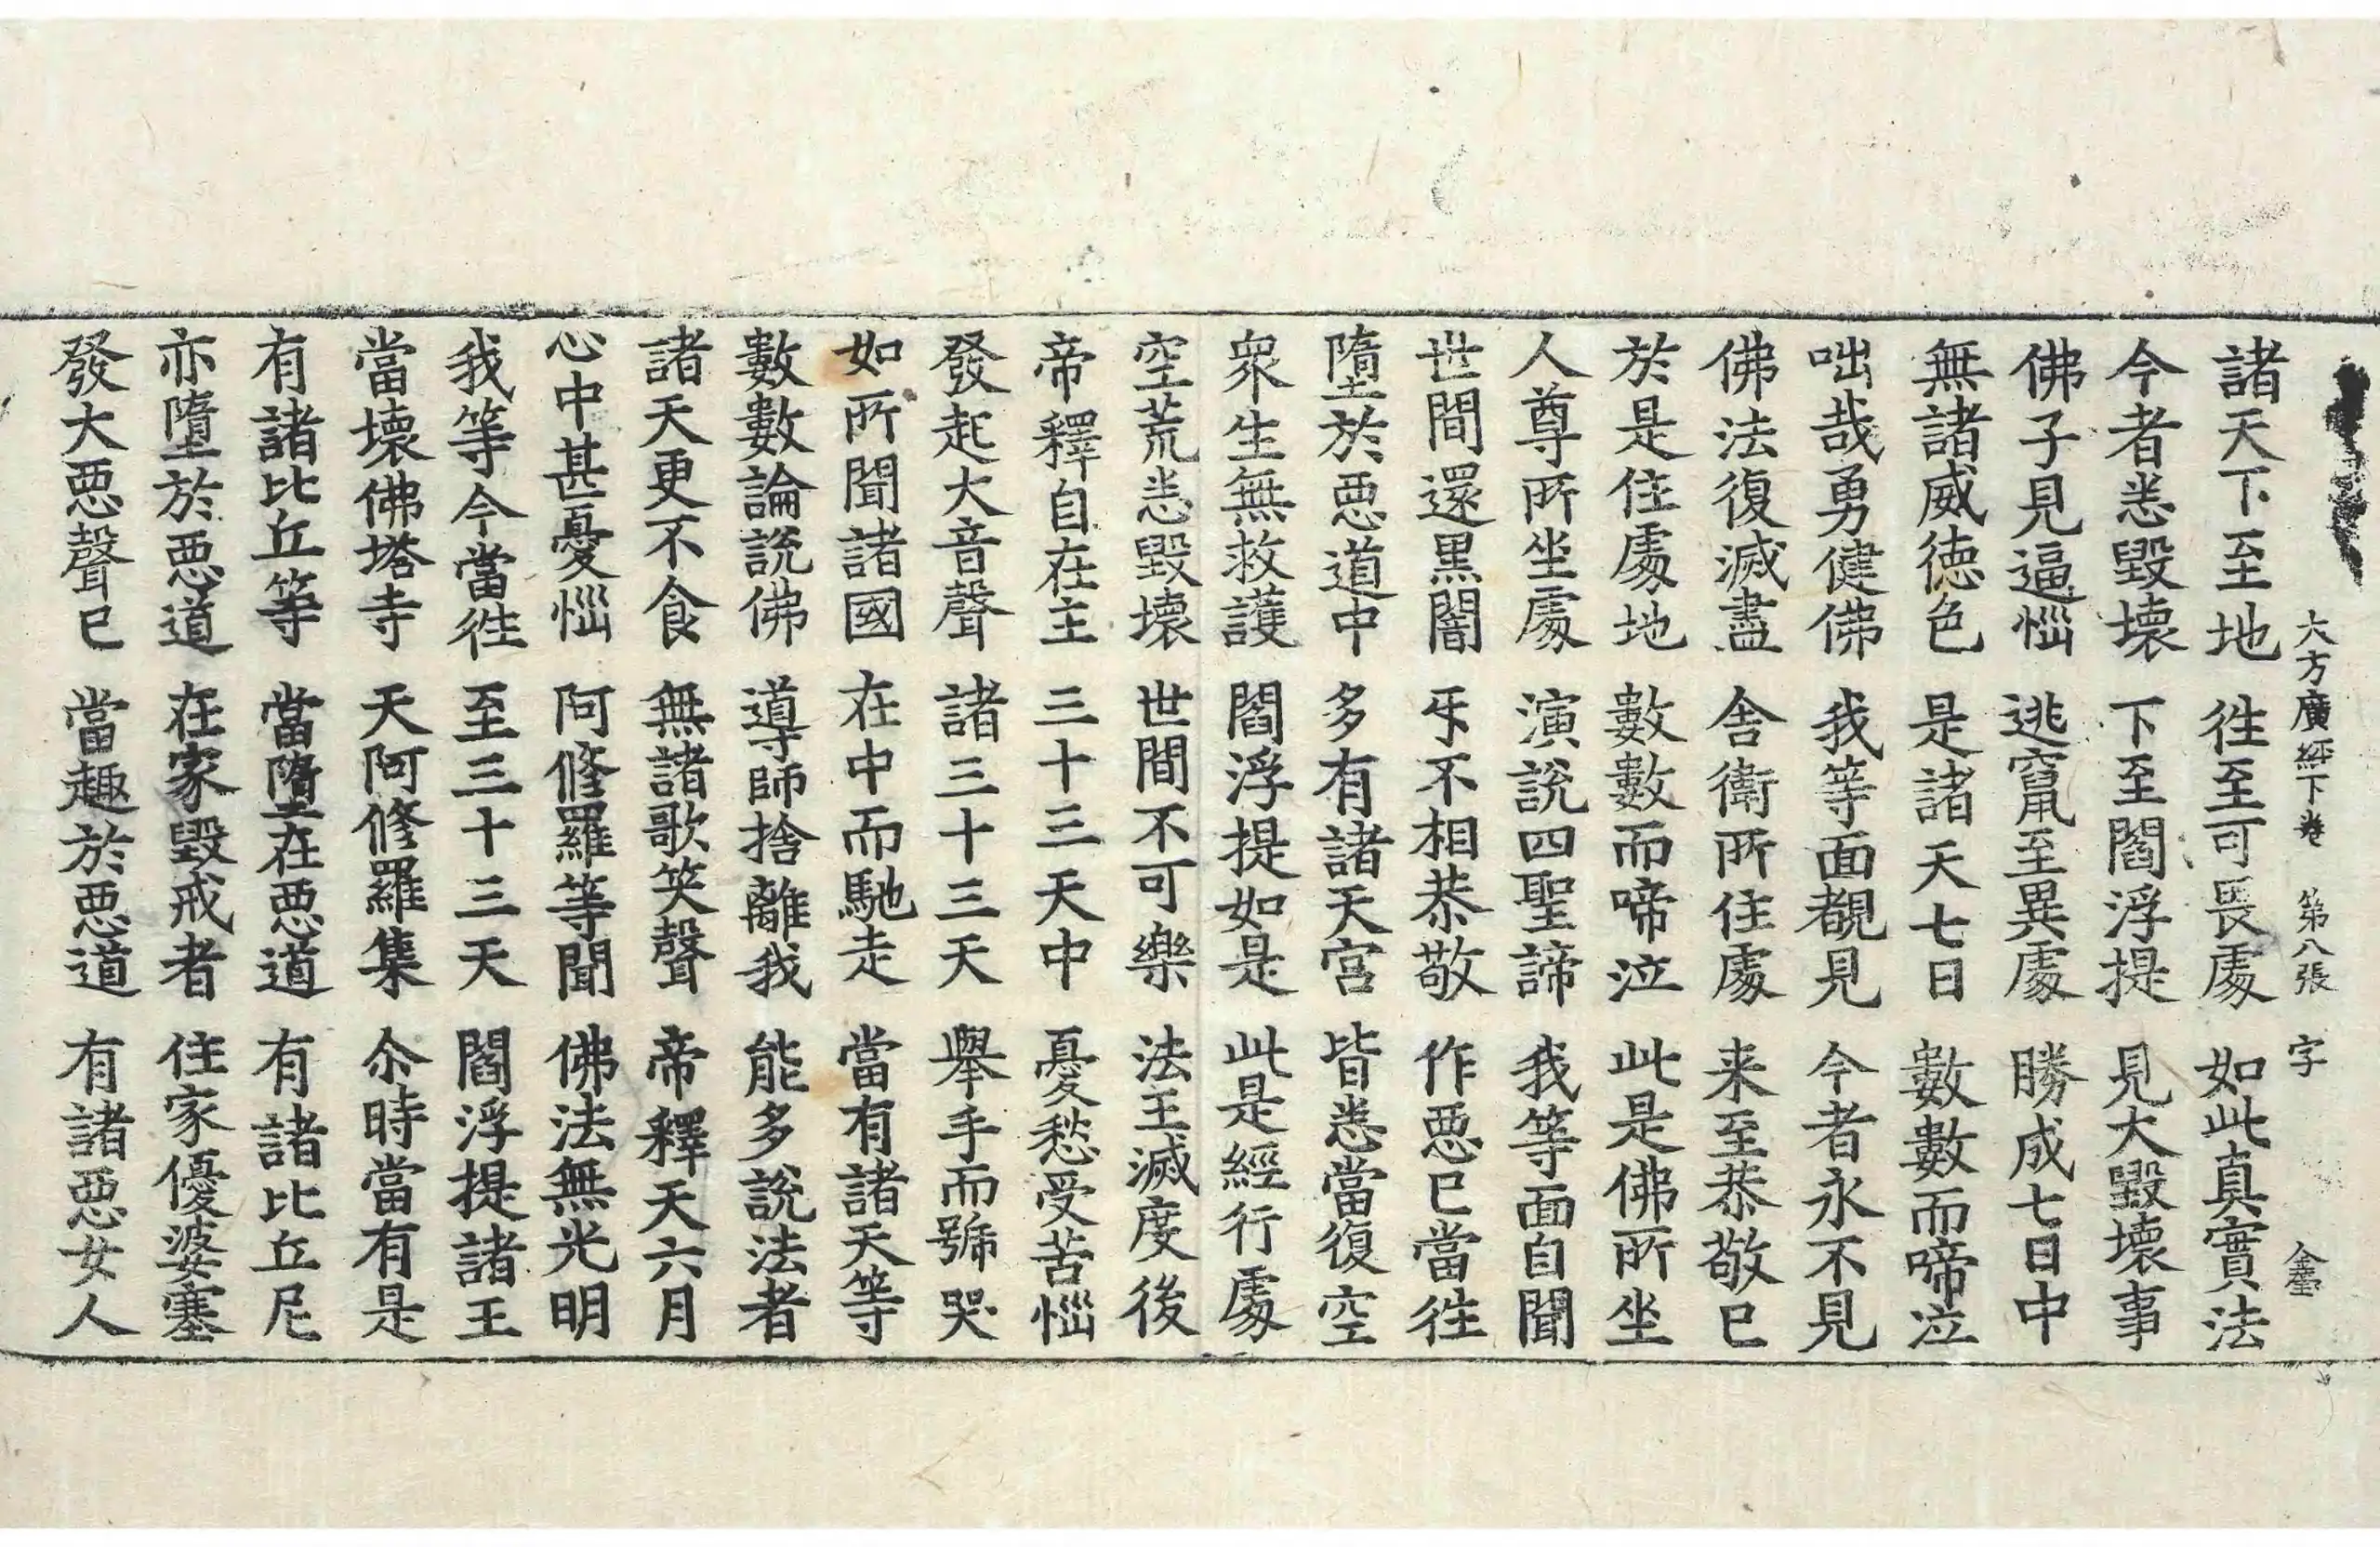 大方廣經下卷 第八張 字 金
諸天下至地 徃至可畏處 如此真實法
今者悉毀壞 下至閻浮提 見大毀壞事
佛子見逼惱 逃竄至異處 勝成七日中
無諸威德色 是諸天七日 數數而啼泣
咄哉勇健佛 我等面覩見 今者永不見
佛法復滅盡 舍衛所住處 来至恭敬已
於是住處地 數數而啼泣 此是佛所坐
人尊所坐處 演說四聖諦 我等面自聞
世間還黑闇 㸦不相恭敬 作惡已當徃
墮於惡道中 多有諸天宮 皆悉當復空
衆生無救護 閻浮提如是 此是經行處
空荒悉毀壞 世間不可樂 法王滅度後
帝釋自在主 三十三天中 憂愁受苦惱
發起大音聲 諸三十三天 舉手而號哭
如所聞諸國 在中而馳走 當有諸天等
數數論說佛 導師捨離我 能多說法者
諸天更不食 無諸歌笑聲 帝釋天六月
心中甚憂惱 阿修羅等聞 佛法無光明
我等今當徃 至三十三天 閻浮提諸王
當壞佛塔寺 天阿修羅集 尒時當有是
有諸比丘等 當墮在惡道 有諸比丘尼
亦墮於惡道 在家毀戒者 住家優婆塞
發大惡聲已 當趣於惡道 有諸惡女人